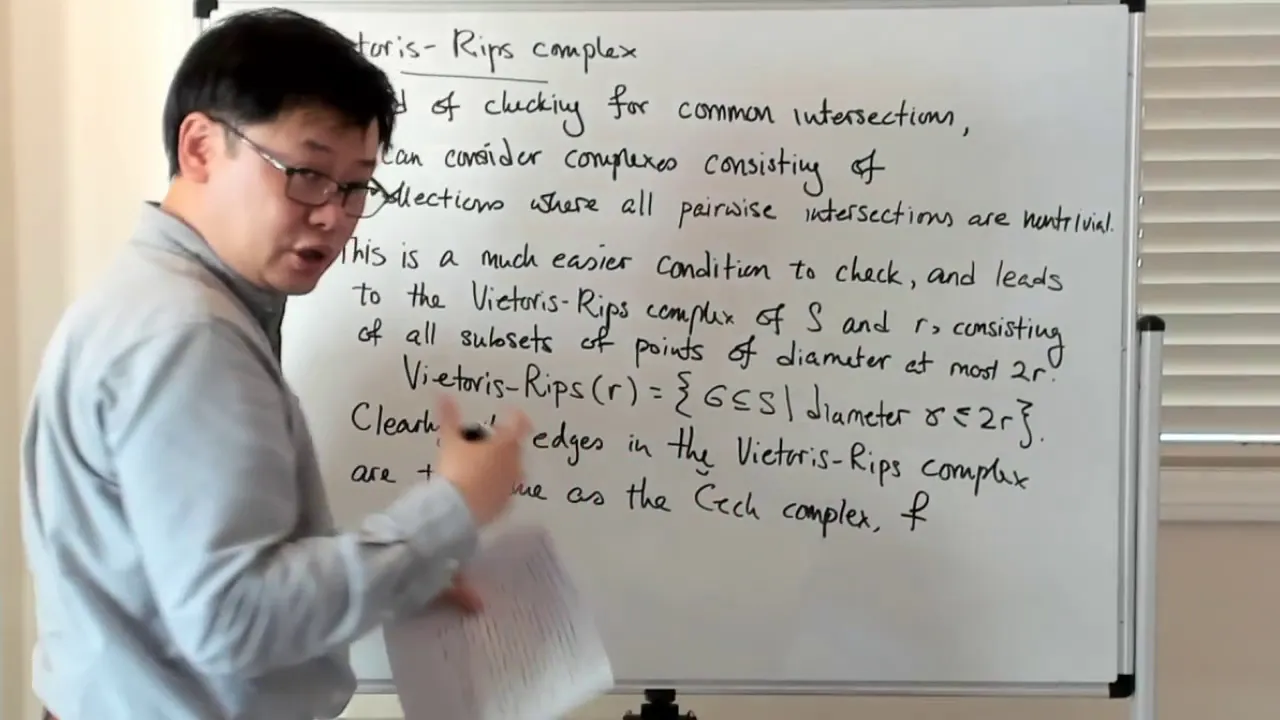 toris-Rips complex
d of checking for common intersections,
can consider complexes consisting of
ollections where all pairwise intersections are nontrivial.
This is a much easier condition to check, and leads
to the Vietoris-Rips complex of S and r, consisting
of all subsets of points of diameter at most 2r.
Vietoris-Rips(r) = {σ ⊆ S | diameter σ ≤ 2r}.
Clearly edges in the Vietoris-Rips complex
are as the Čech complex, f